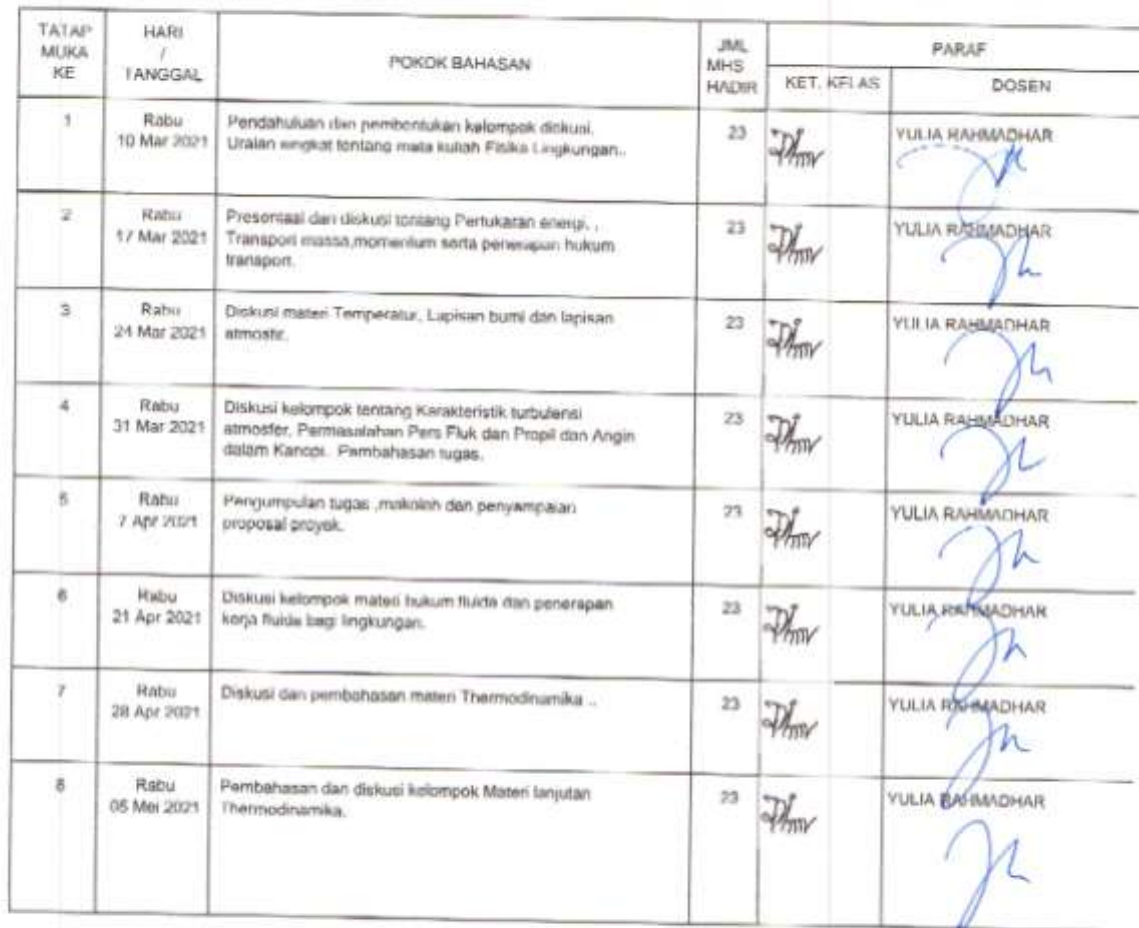 TATAP MUKA KE
HARI / TANGGAL
POKOK BAHASAN
JML MHS HADIR
PARAF
KET. KELAS
DOSEN
1
Rabu
10 Mar 2021
Pendahuluan dan pembentukan kelompok diskusi.
Uraian singkat tentang mata kuliah Fisika Lingkungan..
23
YULIA RAHMADHAR
2
Rabu
17 Mar 2021
Presentasi dan diskusi tentang Pertukaran energi, ,
Transport massa,momentum serta penerapan hukum
transport.
23
YULIA RAHMADHAR
3
Rabu
24 Mar 2021
Diskusi materi Temperatur, Lapisan bumi dan lapisan
atmosfir.
23
YULIA RAHMADHAR
4
Rabu
31 Mar 2021
Diskusi kelompok tentang Karakteristik turbulensi
atmosfer, Permasalahan Pers Fluk dan Propil dan Angin
dalam Kanopi. Pembahasan tugas.
23
YULIA RAHMADHAR
5
Rabu
7 Apr 2021
Pengumpulan tugas ,makalah dan penyampaian
proposal proyek.
23
YULIA RAHMADHAR
6
Rabu
21 Apr 2021
Diskusi kelompok materi hukum fluida dan penerapan
kerja fluida bagi lingkungan.
23
YULIA RAHMADHAR
7
Rabu
28 Apr 2021
Diskusi dan pembahasan materi Thermodinamika ..
23
YULIA RAHMADHAR
8
Rabu
05 Mei 2021
Pembahasan dan diskusi kelompok Materi lanjutan
Thermodinamika.
23
YULIA RAHMADHAR